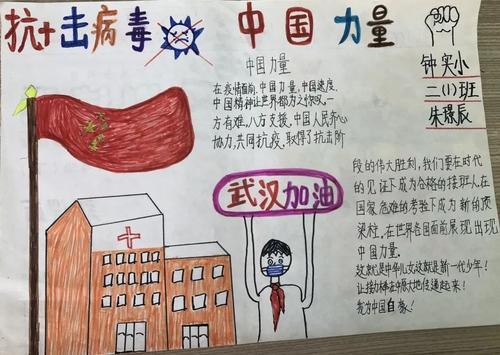 抗击病毒 中国力量
钟实小
二(1)班
朱璟辰
中国力量
在疫情面前,中国力量,中国速度,
中国精神让世界都为之惊叹,一
方有难,八方支援,中国人民齐心
协力,共同抗疫,取得了抗击阶
段的伟大胜利,我们要在时代
的见证下成为合格的接班人在
国家危难的考验下成为新的顶
梁柱,在世界各国面前展现出
中国力量.
这就是中华儿女这就是新一代少年!
让接力棒在中原大地传递起来!
我为中国自豪!
武汉加油